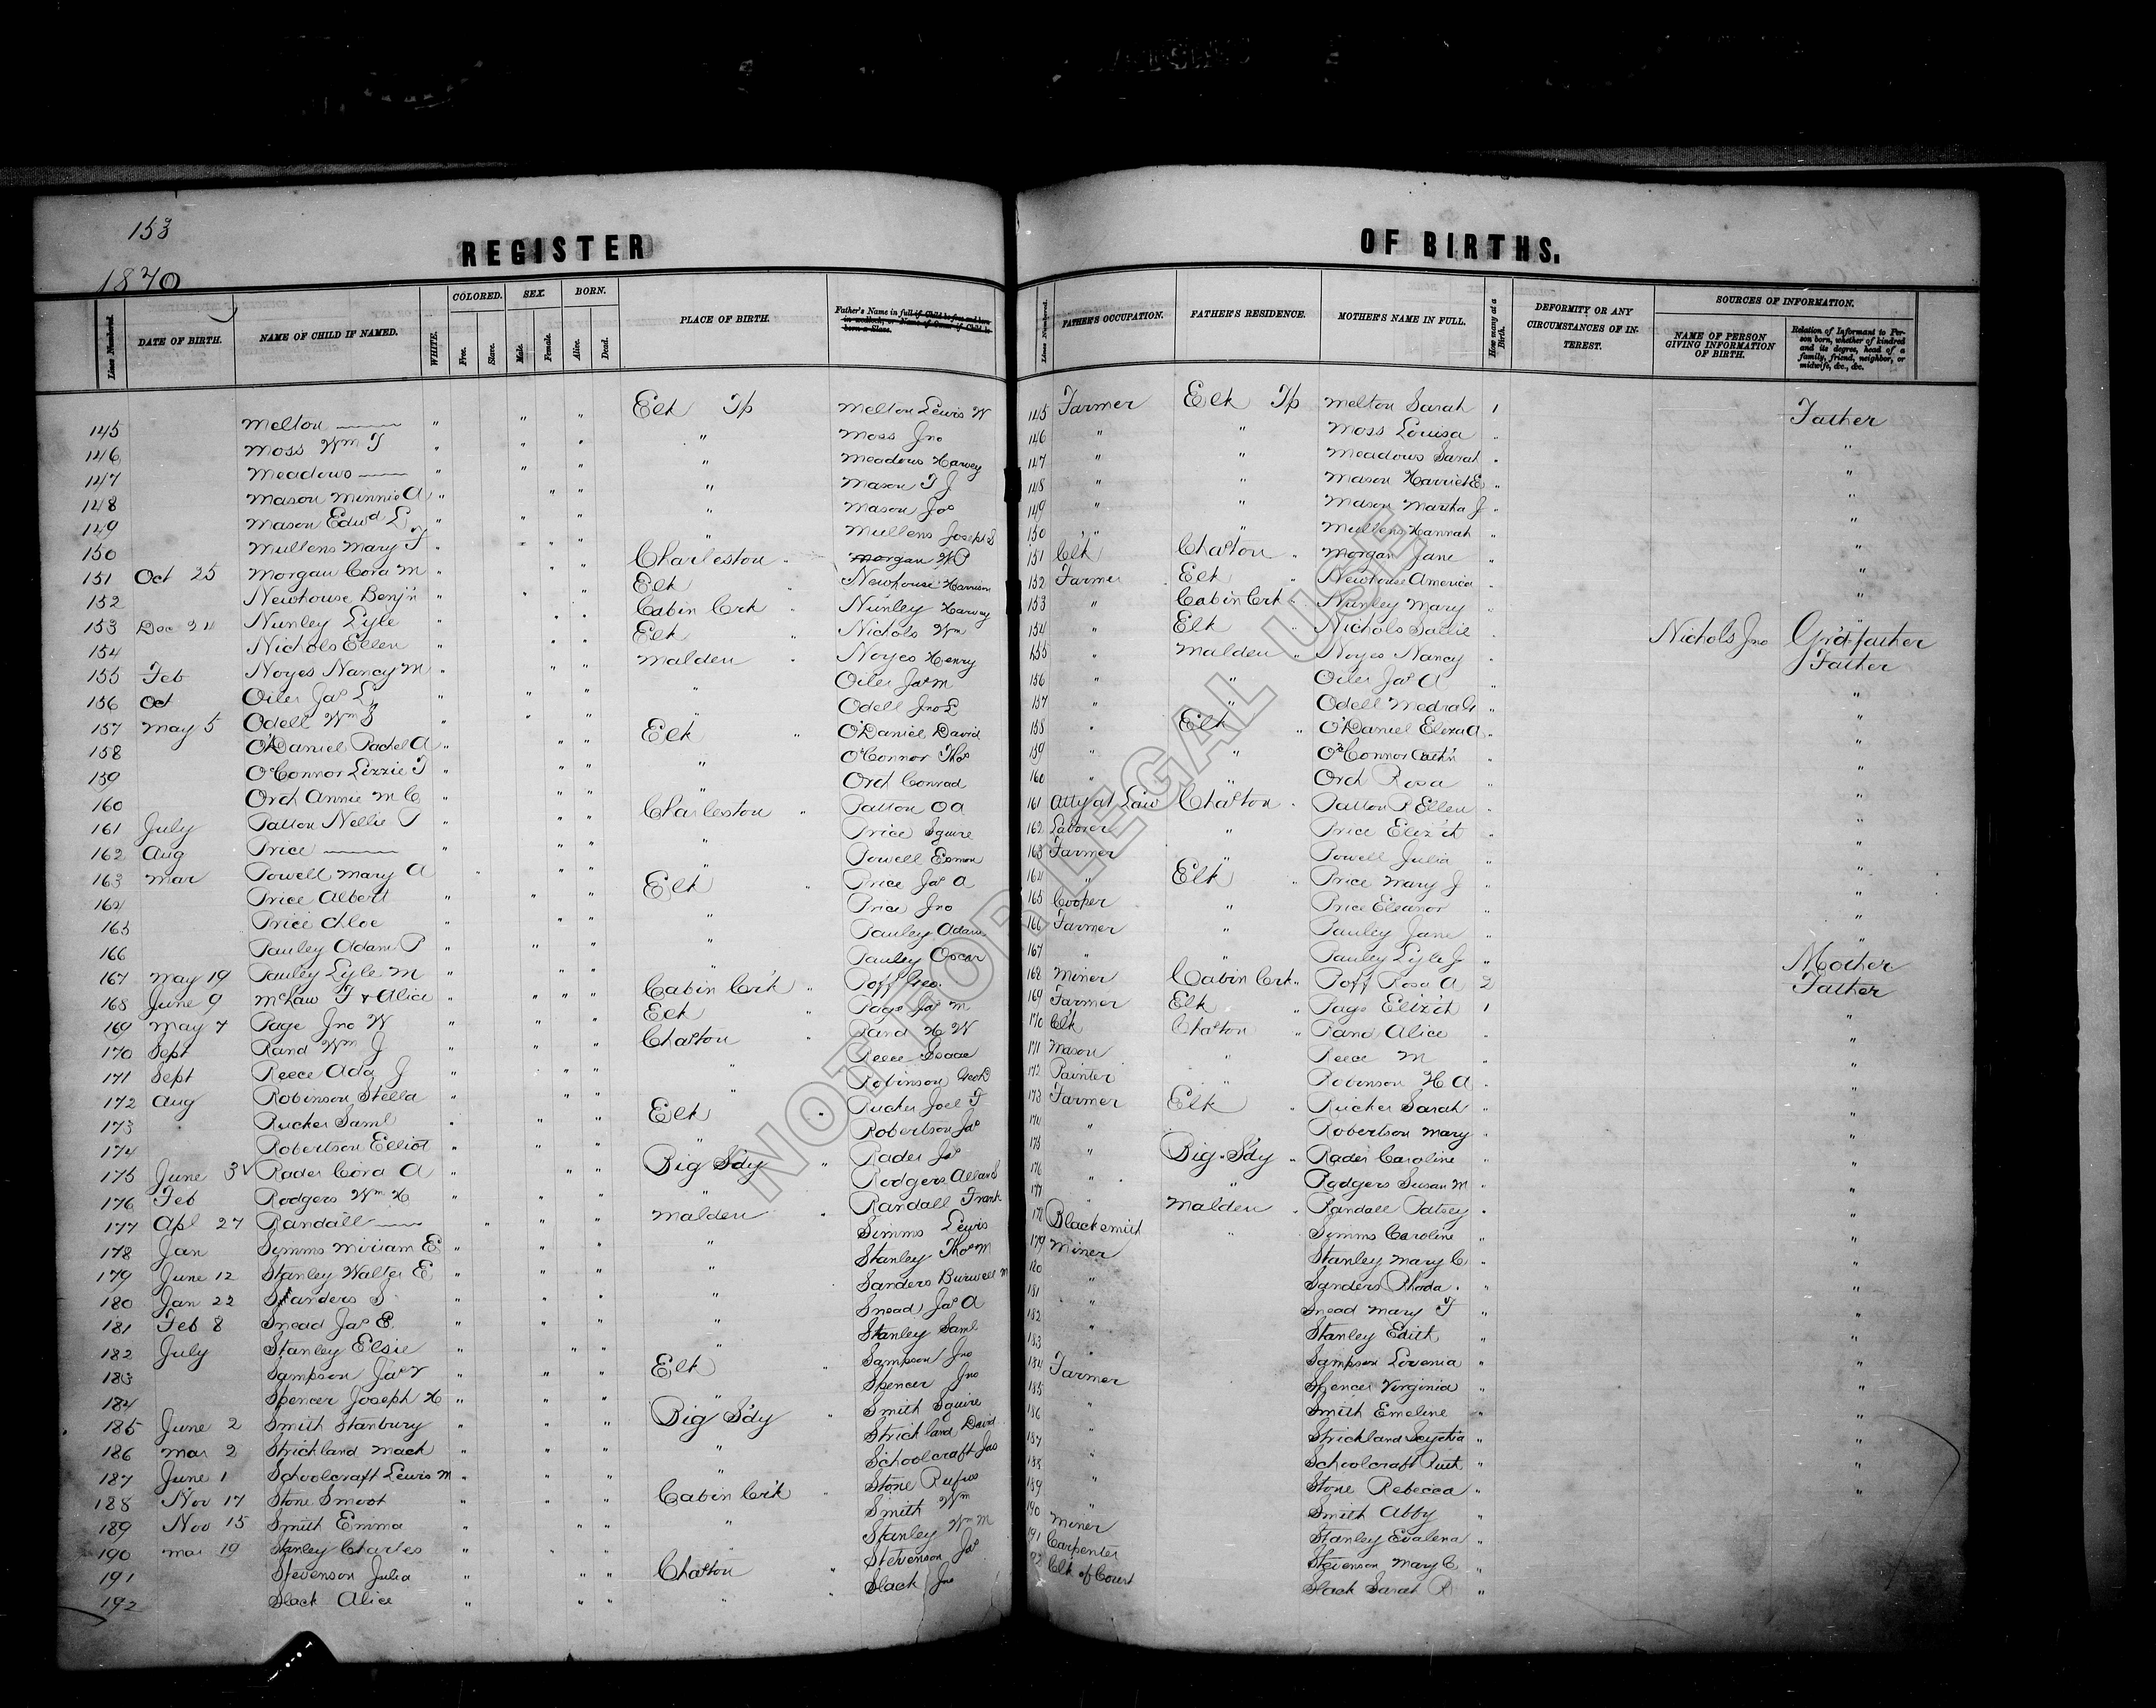 153
1870
REGISTER OF BIRTHS.
Lines Numbered. DATE OF BIRTH. NAME OF CHILD IF NAMED. WHITE. COLORED. Free. Slave. SEX. Male. Female. BORN. Alive. Dead. PLACE OF BIRTH. Father's Name in full if Child be free and born in wedlock, or Name of Owner if Child be born a Slave. Lines Numbered. FATHER'S OCCUPATION. FATHER'S RESIDENCE. MOTHER'S NAME IN FULL. How many at a Birth. DEFORMITY OR ANY CIRCUMSTANCES OF INTEREST. SOURCES OF INFORMATION. NAME OF PERSON GIVING INFORMATION OF BIRTH. Relation of Informant to Person born, whether of kindred and its degree, head of a family, friend, neighbor, or midwife, &c., &c.
145 Melton " " " Elk Tp Melton Lewis W 145 Farmer Elk Tp Melton Sarah 1 Father
146 Moss Wm T " " " " Moss Jno 146 " " Moss Louisa " "
147 Meadows " " " " Meadows Harvey 147 " " Meadows Sarah " "
148 Mason Minnie A " " " " Mason T J 148 " " Mason Harriet E " "
149 Mason Edwd L " " " " Mason Jas 149 " " Mason Martha J " "
150 Mullens Mary F " " " " Mullens Joseph S 150 " " Mullens Hannah " "
151 Oct 25 Morgan Cora M " " " Charleston " Morgan W P 151 Clk Chaston " Morgan Jane " "
152 Newhouse Benj'n " " " Elk " Newhouse Harrison 152 Farmer Elk " Newhouse America " "
153 Dec 24 Nunley Lyle " " " Cabin Crk " Nunley Harvey 153 " Cabin Crk " Nunley Mary " "
154 Nichols Ellen " " " Elk " Nichols Wm 154 " Elk " Nichols Sallie " Nichols Jno Grdfather
155 Feb Noyes Nancy M " " " Malden " Noyes Henry 155 " Malden " Noyes Nancy " Father
156 Oct Oiler Jas L " " " " Oiler Jas M 156 " " Oiler Jas A " "
157 May 5 Odell Wm S " " " " Odell Jno L 157 " " Odell Medra G " "
158 O'Daniel Rachel A " " " Elk " O'Daniel David 158 " Elk " O'Daniel Eleza A " "
159 O'Connor Lizzie T " " " " O'Connor Thos 159 " " O'Connor Cath'n " "
160 Orch Annie M C " " " " Orch Conrad 160 " " Orch Rosa " "
161 July Patton Nellie P " " " Charleston " Patton O A 161 Atty at Law Chaston " Patton P Ellen " "
162 Aug Price " " " " Price Squire 162 Laborer " Price Eliz'th " "
163 Mar Powell Mary A " " " " Powell Esmon 163 Farmer " Powell Julia " "
164 Price Albert " " " Elk " Price Jas A 164 " Elk " Price Mary J " "
165 Price Chloe " " " " Price Jno 165 Cooper " Price Eleanor " "
166 Pauley Adam P " " " " Pauley Adam 166 Farmer " Pauley Jane " "
167 May 19 Pauley Lyle M " " " " Pauley Oscar 167 " " Pauley Lyle J " "
168 June 9 McLaw T & Alice " " " " Cabin Crk " Poff Geo. 168 Miner Cabin Crk " Poff Rosa A 2 Mother
169 May 7 Page Jno W " " " Elk " Page Jas M 169 Farmer Elk " Page Eliz'th 1 Father
170 Sept Rand Wm J " " " Chaston " Rand H W 170 Clk Chaston " Rand Alice " "
171 Sept Reece Ada J " " " " Reece Isaac 171 Mason " Reece M " "
172 Aug Robinson Stella " " " " Robinson Geo D 172 Painter " Robinson H A " "
173 Rucker Saml " " " Elk " Rucker Joel T 173 Farmer Elk " Rucker Sarah " "
174 Robertson Elliot " " " " Robertson Jas 174 " Robertson Mary " "
175 June 3 Rader Cora A " " " Big Sdy " Rader Jas 175 " Big Sdy " Rader Caroline " "
176 Feb Rodgers Wm H " " " " Rodgers Allan S 176 " " Rodgers Susan M " "
177 Apl 27 Randall " " " Malden " Randall Frank 177 " Malden " Randall Patsey " "
178 Jan Simms Miriam E " " " " Simms Lewis 178 Blacksmith " Simms Caroline " "
179 June 12 Stanley Walter E " " " " Stanley Thos M 179 Miner Stanley Mary C " "
180 Jan 22 Sanders S. " " " " Sanders Burwell M 180 " Sanders Rhoda " "
181 Feb 8 Snead Jas E. " " " " Snead Jas A 181 " Snead Mary F " "
182 July Stanley Elsie " " " " Stanley Saml 182 " Stanley Edith " "
183 Sampson Jas V " " " Elk " Sampson Jno 183 " Sampson Lovenia " "
184 Spencer Joseph H " " " " Spencer Jno 184 Farmer Spencer Virginia " "
185 June 2 Smith Stanbury " " " Big Sdy " Smith Squire 185 " Smith Emeline " "
186 Mar 2 Strickland Mack " " " " Strickland David 186 " Strickland Scyntha " "
187 June 1 Schoolcraft Lewis M " " " " Schoolcraft Jas 187 " Schoolcraft Ruth " "
188 Nov 17 Stone Smoot " " " Cabin Crk " Stone Rufus 188 " Stone Rebecca " "
189 Nov 15 Smith Emma " " " " Smith Wm 189 " Smith Abby "
190 Mar 19 Stanley Charles " " " " Stanley Wm M 190 Miner Stanley Evalena "
191 Stevenson Julia " " " Chaston " Stevenson Jas 191 Carpenter Stevenson Mary C "
192 Slack Alice " " " " Slack Jno 192 Clk of Court Slack Sarah R "
NOT FOR LEGAL USE